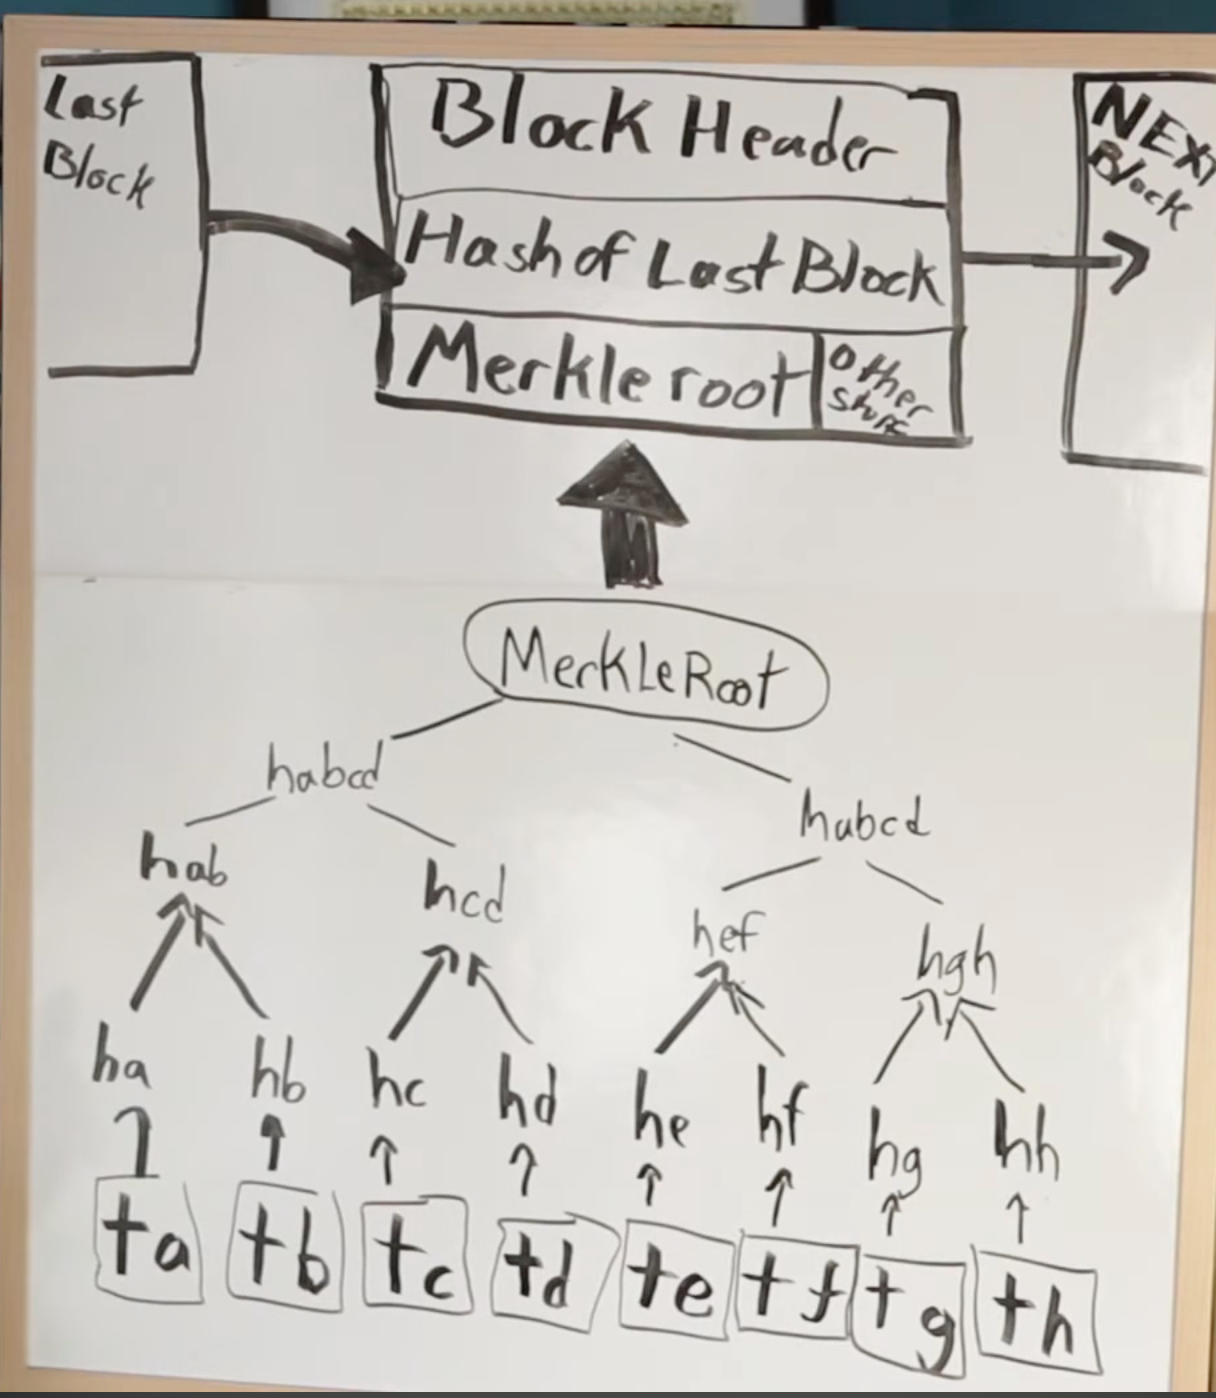 Last
Block
Block Header
Hash of Last Block
Merkle root
Other
stuff
NEXT
Block
MerkleRoot
habcd
habcd
hab
hcd
hef
hgh
ha
hb
hc
hd
he
hf
hg
hh
ta
tb
tc
td
te
tf
tg
th